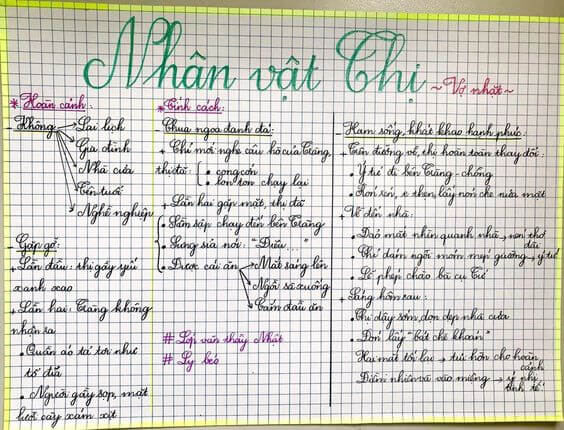 Nhân vật Thị
~ Vợ nhặt ~
* Hoàn cảnh:
- Không → Lai lịch
→ Gia đình
→ Nhà cửa
→ Tên tuổi
→ Nghề nghiệp
- Gặp gỡ:
+ Lần đầu: thị gầy yếu
xanh xao
+ Lần hai: Tràng không
nhận ra
• Quần áo tả tơi như
tổ đỉa
• Người gầy sọp, mặt
lưỡi cày xám xịt
* Tính cách:
- Chua ngoa đanh đá:
+ Chỉ mới nghe câu hò của Tràng,
thị đã: • cong cớn
• lon ton chạy lại
+ Lần hai gặp mặt, thị đã
• Sầm sập chạy đến bên Tràng
• Sưng sỉa nói: "Điêu..."
• Được cái ăn → Mắt sáng lên
→ Ngồi sà xuống
→ Cắm đầu ăn
# Lớp văn thầy Nhật
# Ly béo
- Ham sống, khát khao hạnh phúc:
+ Trên đường về, thị hoàn toàn thay đổi:
• Ý tứ đi bên Tràng - chồng
• Rón rén, e thẹn, lấy nón che nửa mặt
+ Về đến nhà:
• Đảo mắt nhìn quanh nhà, nén thở
dài
• Chỉ dám ngồi mớm mép giường → ý tứ
• Lễ phép chào bà cụ Tứ
+ Sáng hôm sau:
• Thị dậy sớm, dọn dẹp nhà cửa
• Đón lấy "bát chè khoán"
Hai mắt tối lại → tủi hờn cho hoàn
cảnh
Điềm nhiên và vào miệng → ý nhị
tinh tế